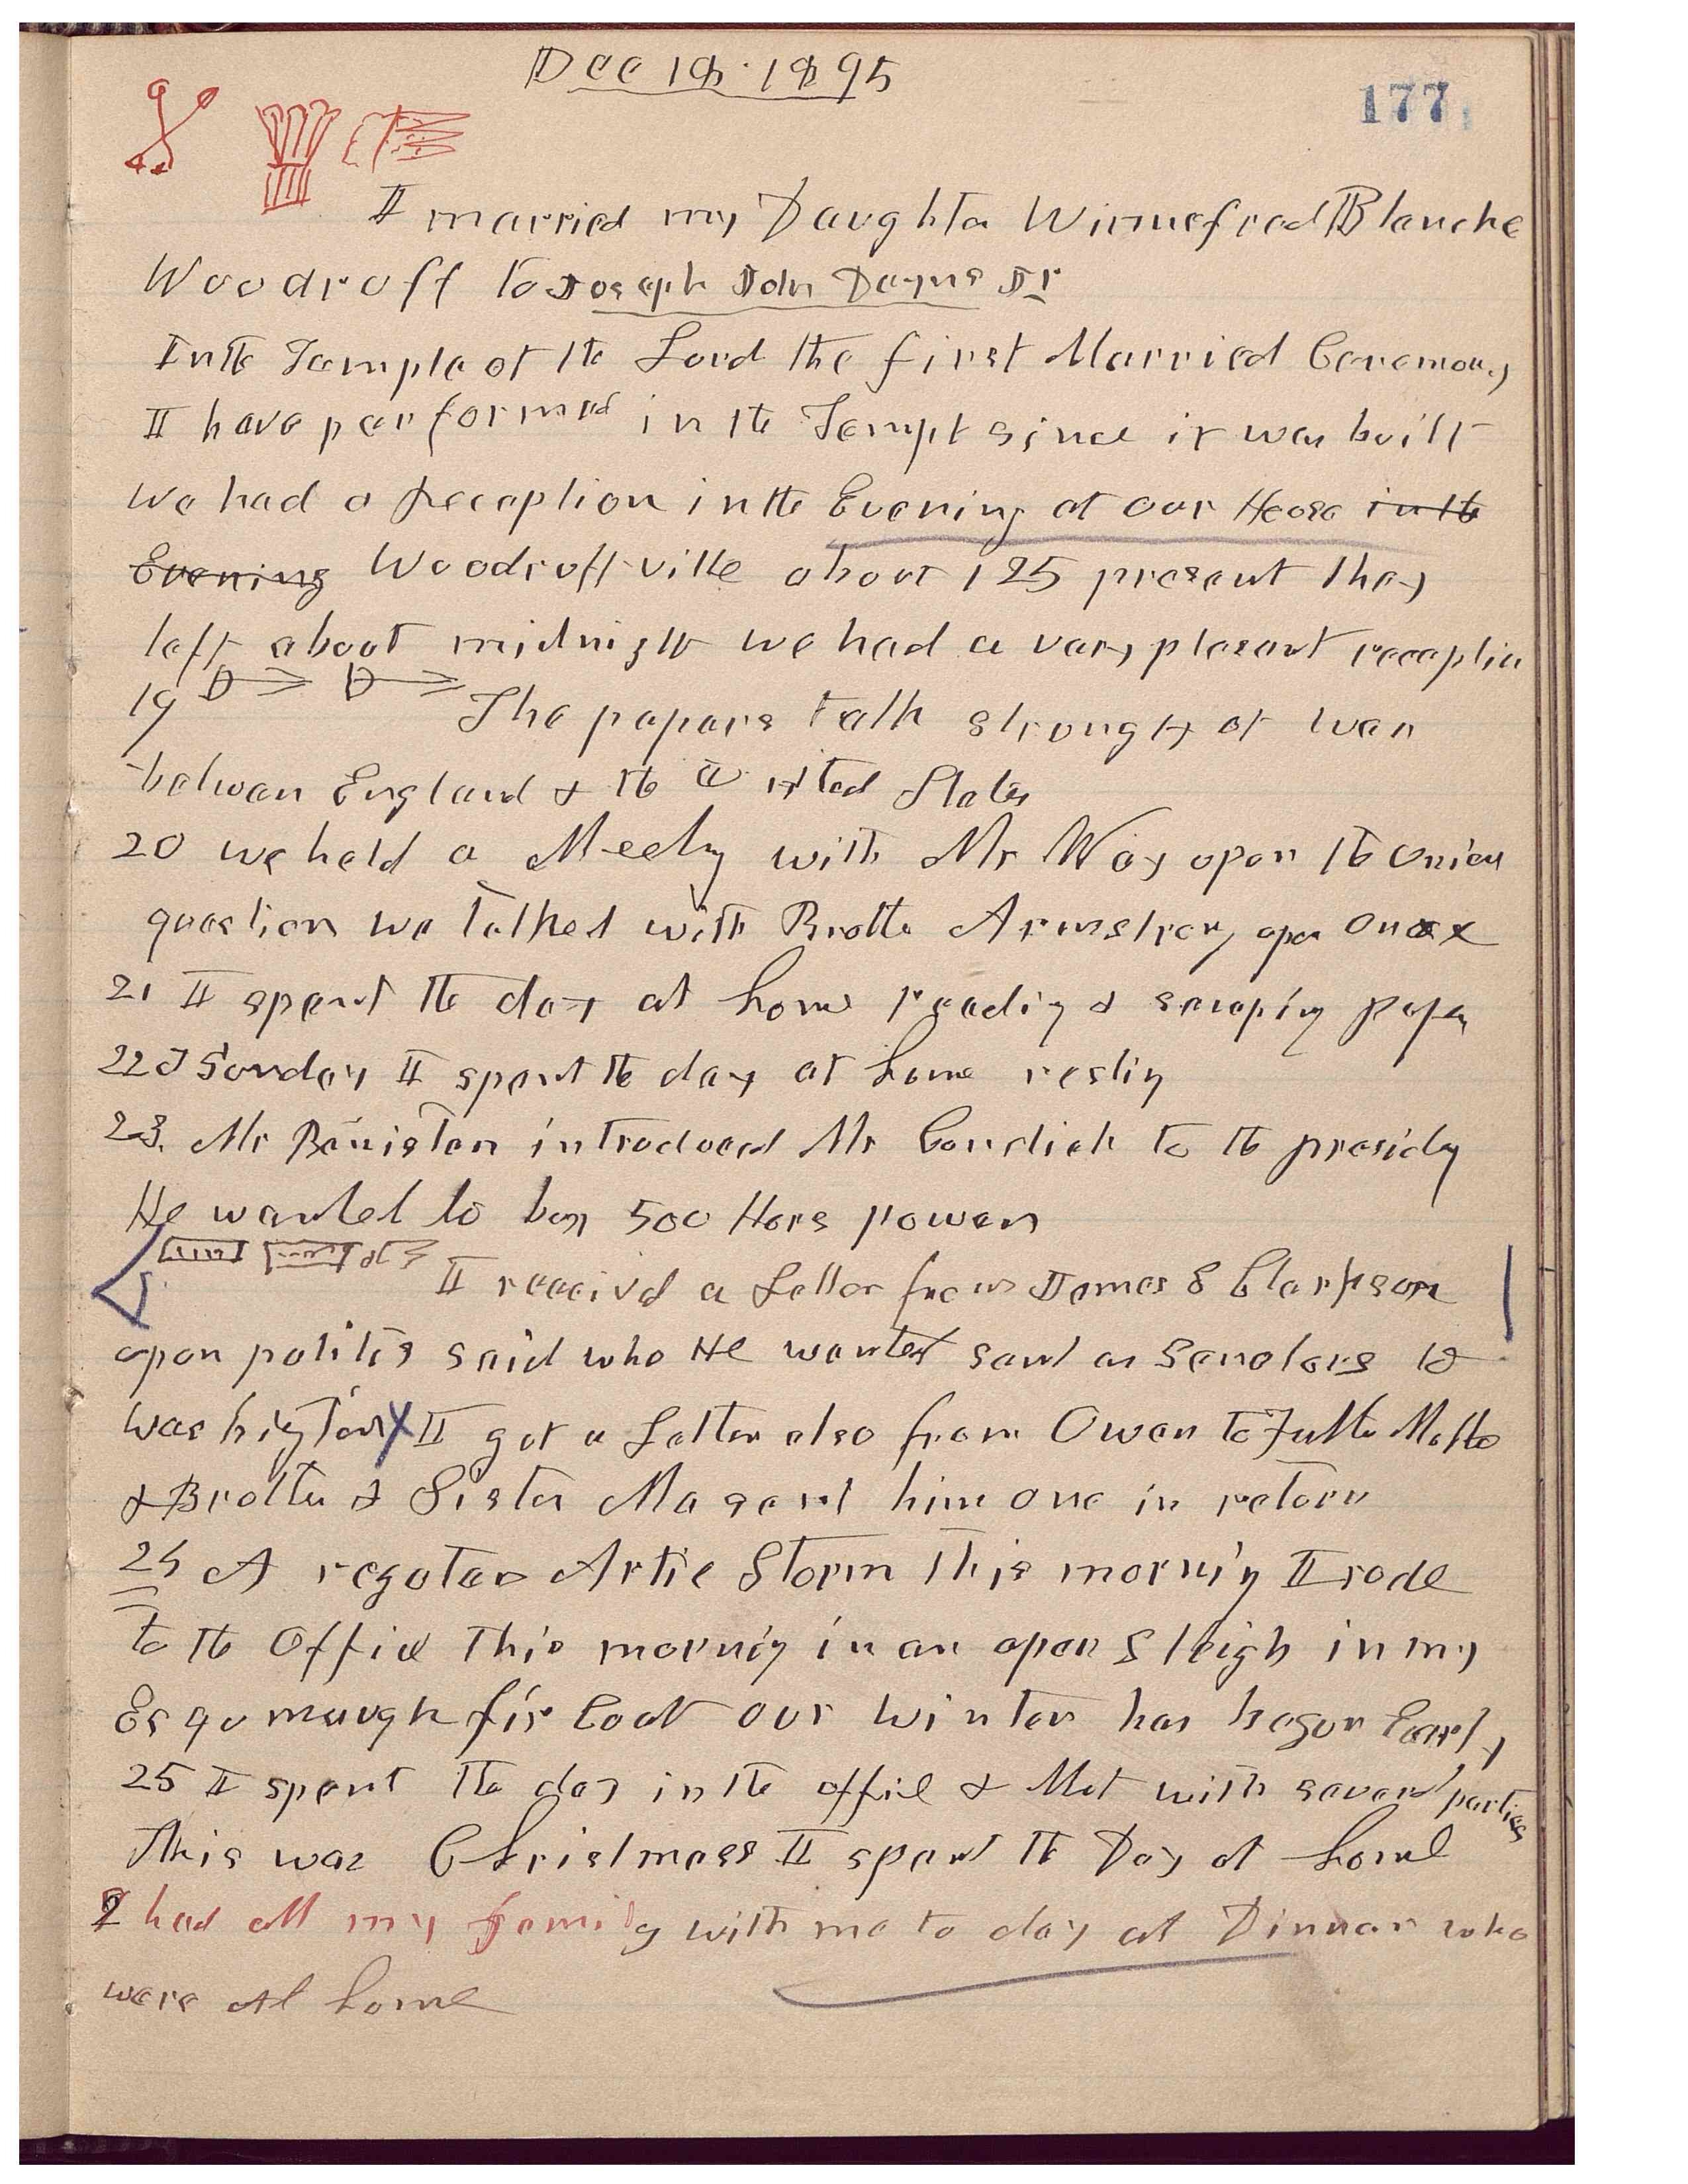 Dec 18. 1895
177
I married my Daughter Winnefred Blanche
Woodroff to Joseph John Daynes Jr
In the Temple of the Lord the first Married Ceremony
I have performed in the Templ since it was built
We had a Reception in the Evening at our House in the
Evening Woodroffville about 125 present They
left about midnight we had a very plesant reception
19 The papers talk strongly of war
betwen England & the United States
20 we held a Meeting with Mr Way upon the Union
question we talked with Brother Armstrong upon
21 I spent the day at home reading & scraping paper
22d Sunday I spent the day at home resting
23. Mr Banister introduced Mr Condick to the presidy
He wanted to buy 500 Hors power
I receivd a Letter from James S Clarkson
upon politis said who He wanted sent as Senators to
Washigton X I got a Letter also from Owen to Fatther Mother
& Brother & Sister Ma sent him one in return
24 A regular Artic Storm this morning I rode
to the Office This morning in an open Sleigh in my
Esqumaugh fir Coat our winter has begun Early
25 I spent the day in the office & Met with several parties
This was Christmass I spent the Day at home
I had all my family with me to day at Dinner who
were at home